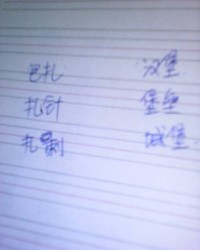 包扎 汉堡
扎针 堡垒
扎制 城堡